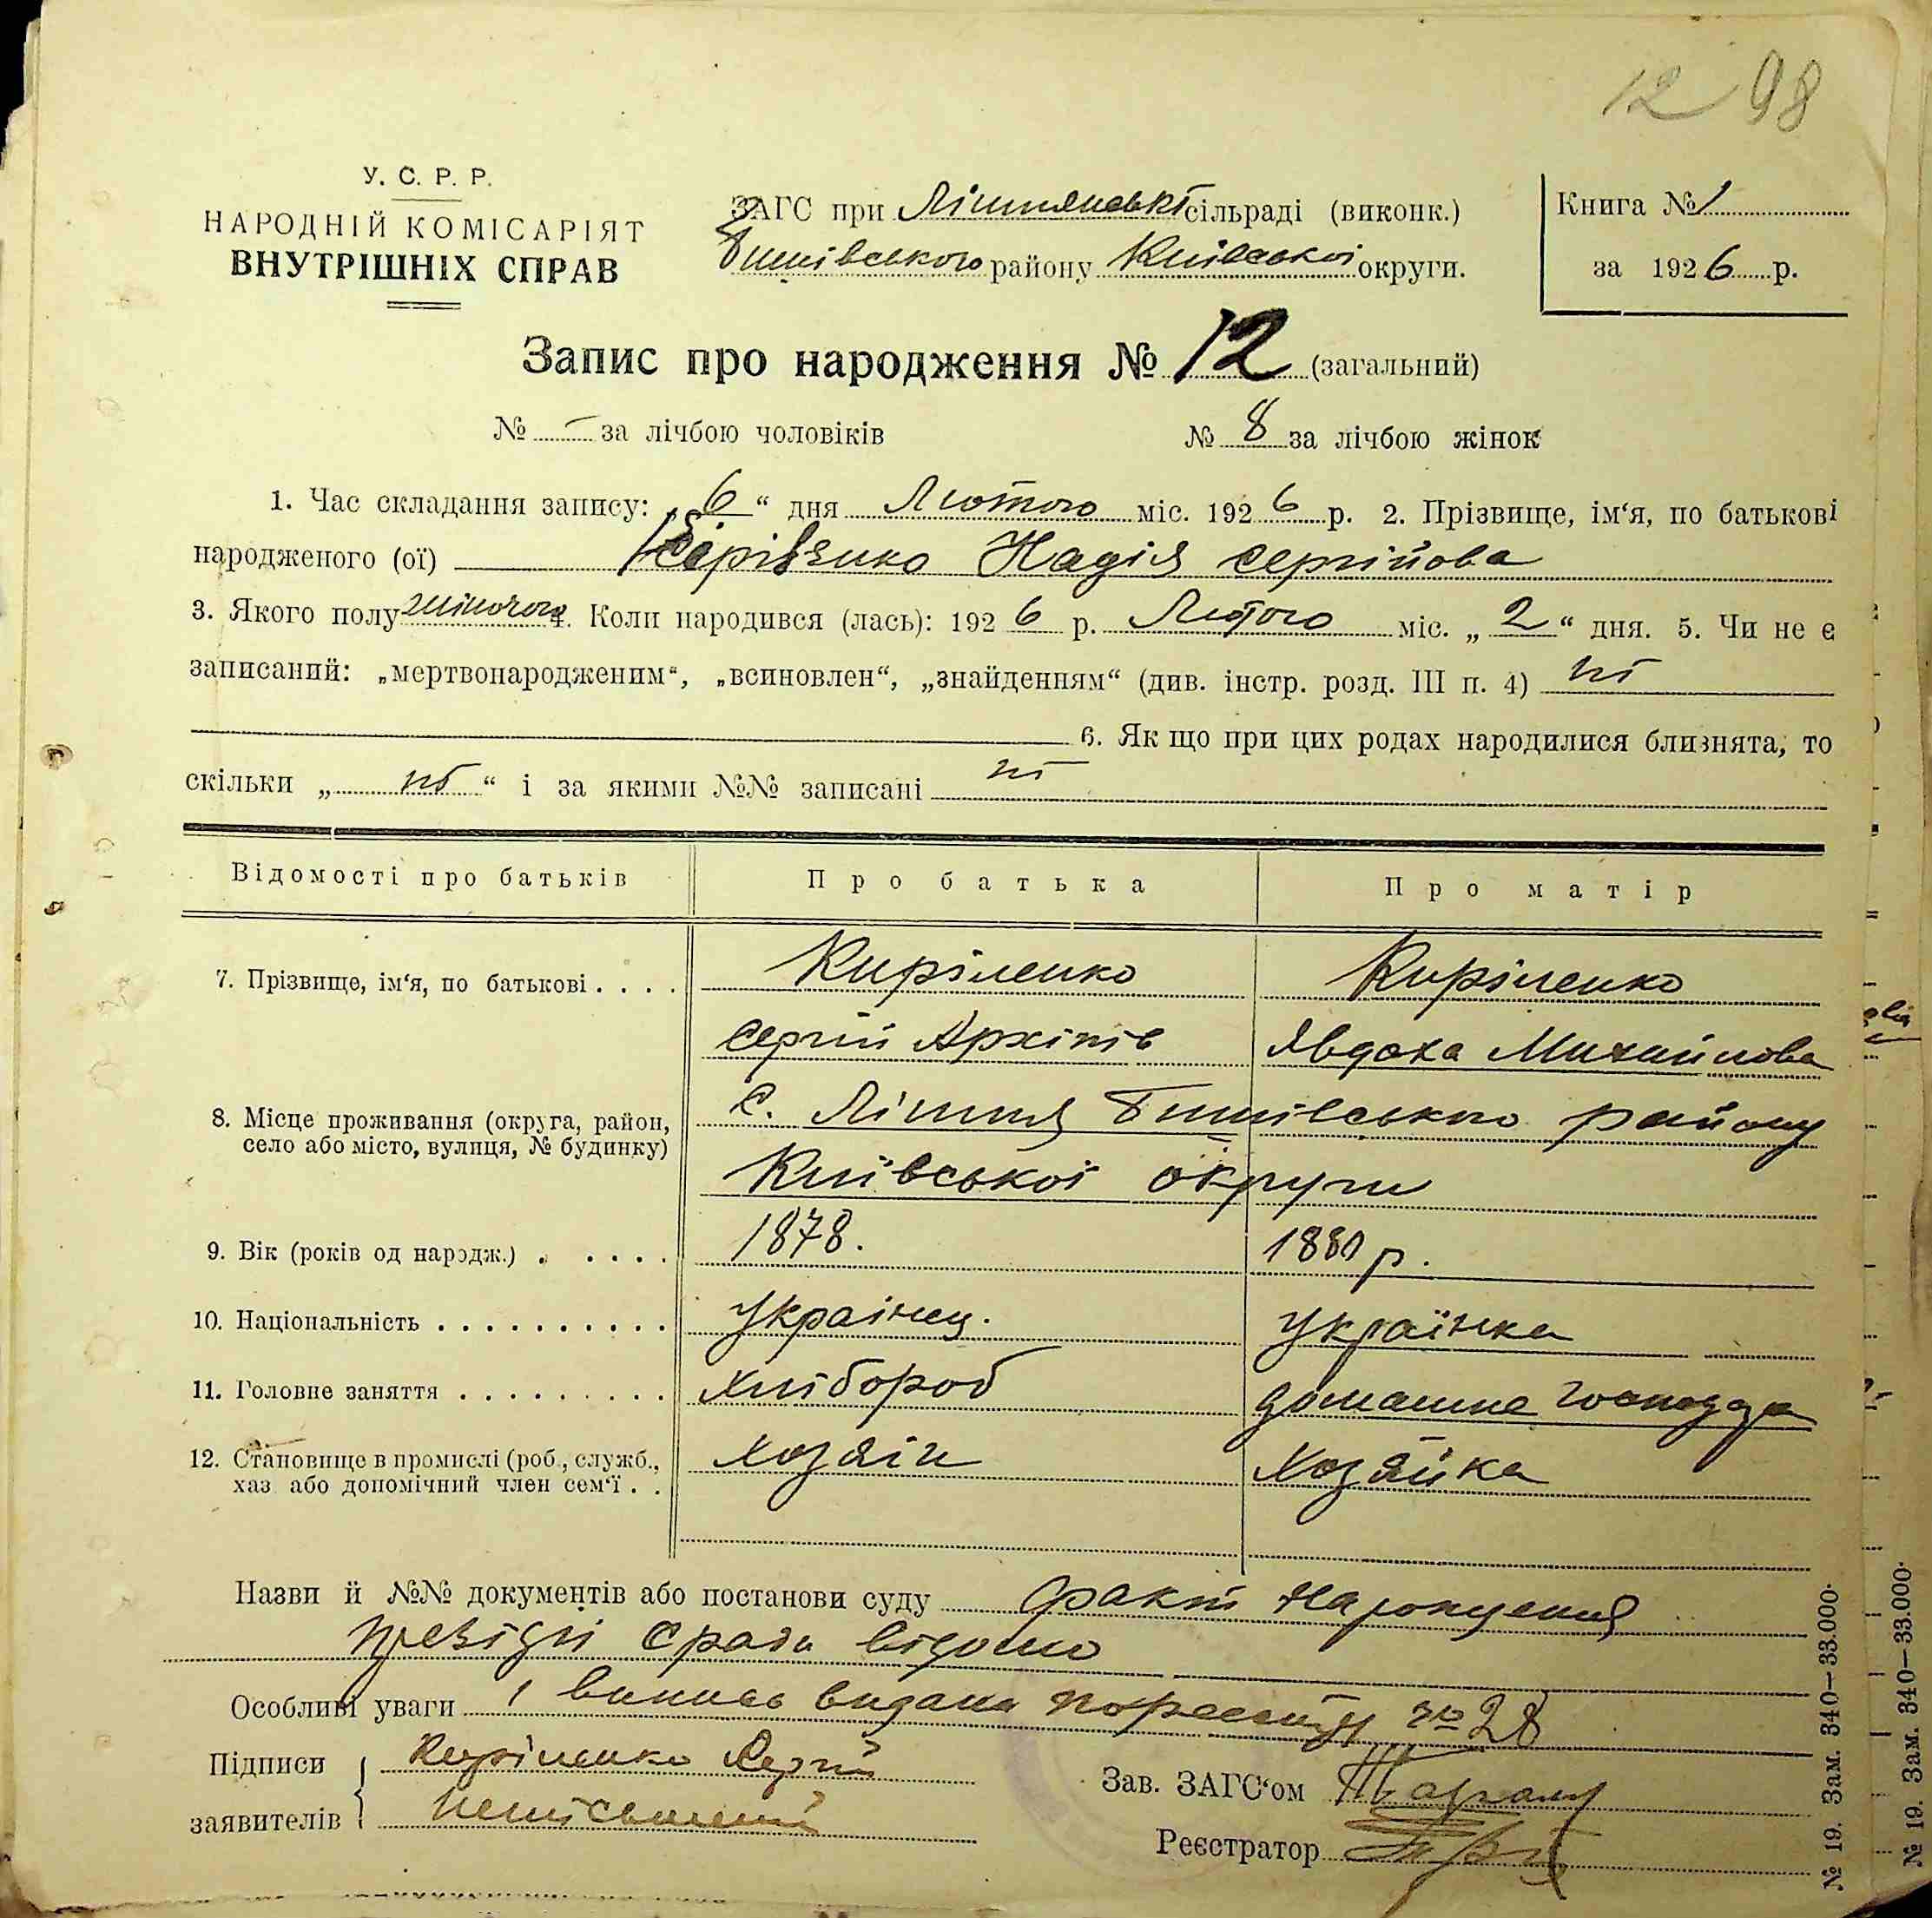 12 98
У. С. Р. Р.
НАРОДНІЙ КОМІСАРІЯТ
ВНУТРІШНІХ СПРАВ
ЗАГС при Лішнянській сільраді (виконк.)
Бишівського району Київської округи.
Книга № 1
за 1926 р.
Запис про народження № 12 (загальний)
№ – за лічбою чоловіків № 8 за лічбою жінок
1. Час складання запису: „6“ дня Лютого міс. 1926 р. 2. Прізвище, ім‘я, по батькові
народженого (ої) Надія Сергійова
3. Якого полу жіночого 4. Коли народився (лась): 1926 р. Лютого міс. „2“ дня. 5. Чи не є
записаний: „мертвонародженим“, „всиновлен“, „знайденням“ (див. інстр. розд. III п. 4) ні
6. Як що при цих родах народилися близнята, то
скільки „ ні “ і за якими №№ записані ні
Відомості про батьків Про батька Про матір
7. Прізвище, ім‘я, по батькові . . . . Киріленко Киріленко
Сергій Архипів Явдоха Михайлова
8. Місце проживання (округа, район, село або місто, вулиця, № будинку) С. Лішня Бишівського району
Київської округи
9. Вік (років од народж.) . . . . . 1878. 1880 р.
10. Національність . . . . . . . . . . Українец. Українка
11. Головне заняття . . . . . . . . . Хлібороб домашнє
12. Становище в промислі (роб., служб., хаз або допомічний член сем‘ї . . Хозяїн Хозяйка
Назви й №№ документів або постанови суду факт Народження
президії Сради відомо
Особливі уваги 1 випись видана по реєстру № 28
Підписи Киріленко Сергій
заявителів неписьменний
Зав. ЗАГС‘ом
Реєстратор
№ 19. Зам. 340–33.000.
№ 19. Зам. 340–33.000.